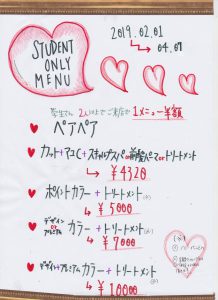 STUDENT
ONLY
MENU
2019.02.01
↳ 04.07
学生さん 2人以上でご来店で 1メニュー半額
♥ ペアペア
♥ カット+アコC+スキャルプスパ or 前髪パーマ or トリートメント
↳ ¥4320
♥ ポイントカラー + トリートメント
↳ ¥5000
♥ デザイン or プレミアム カラー + トリートメント
↳ ¥7000
♥ デザイン+プレミアムカラー + トリートメント
↳ ¥10000